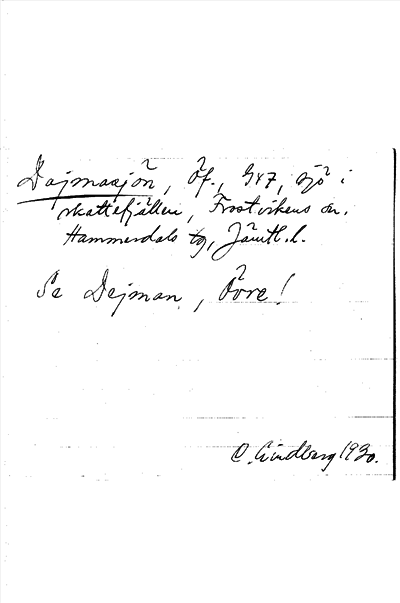 Dajmasjön, Öf., GX7, sjö i
skattefjällen, Frostvikens sn.
Hammerdals tg, Jämtl. l.
Se Dejman, Övre!
C. Lindberg 1930.